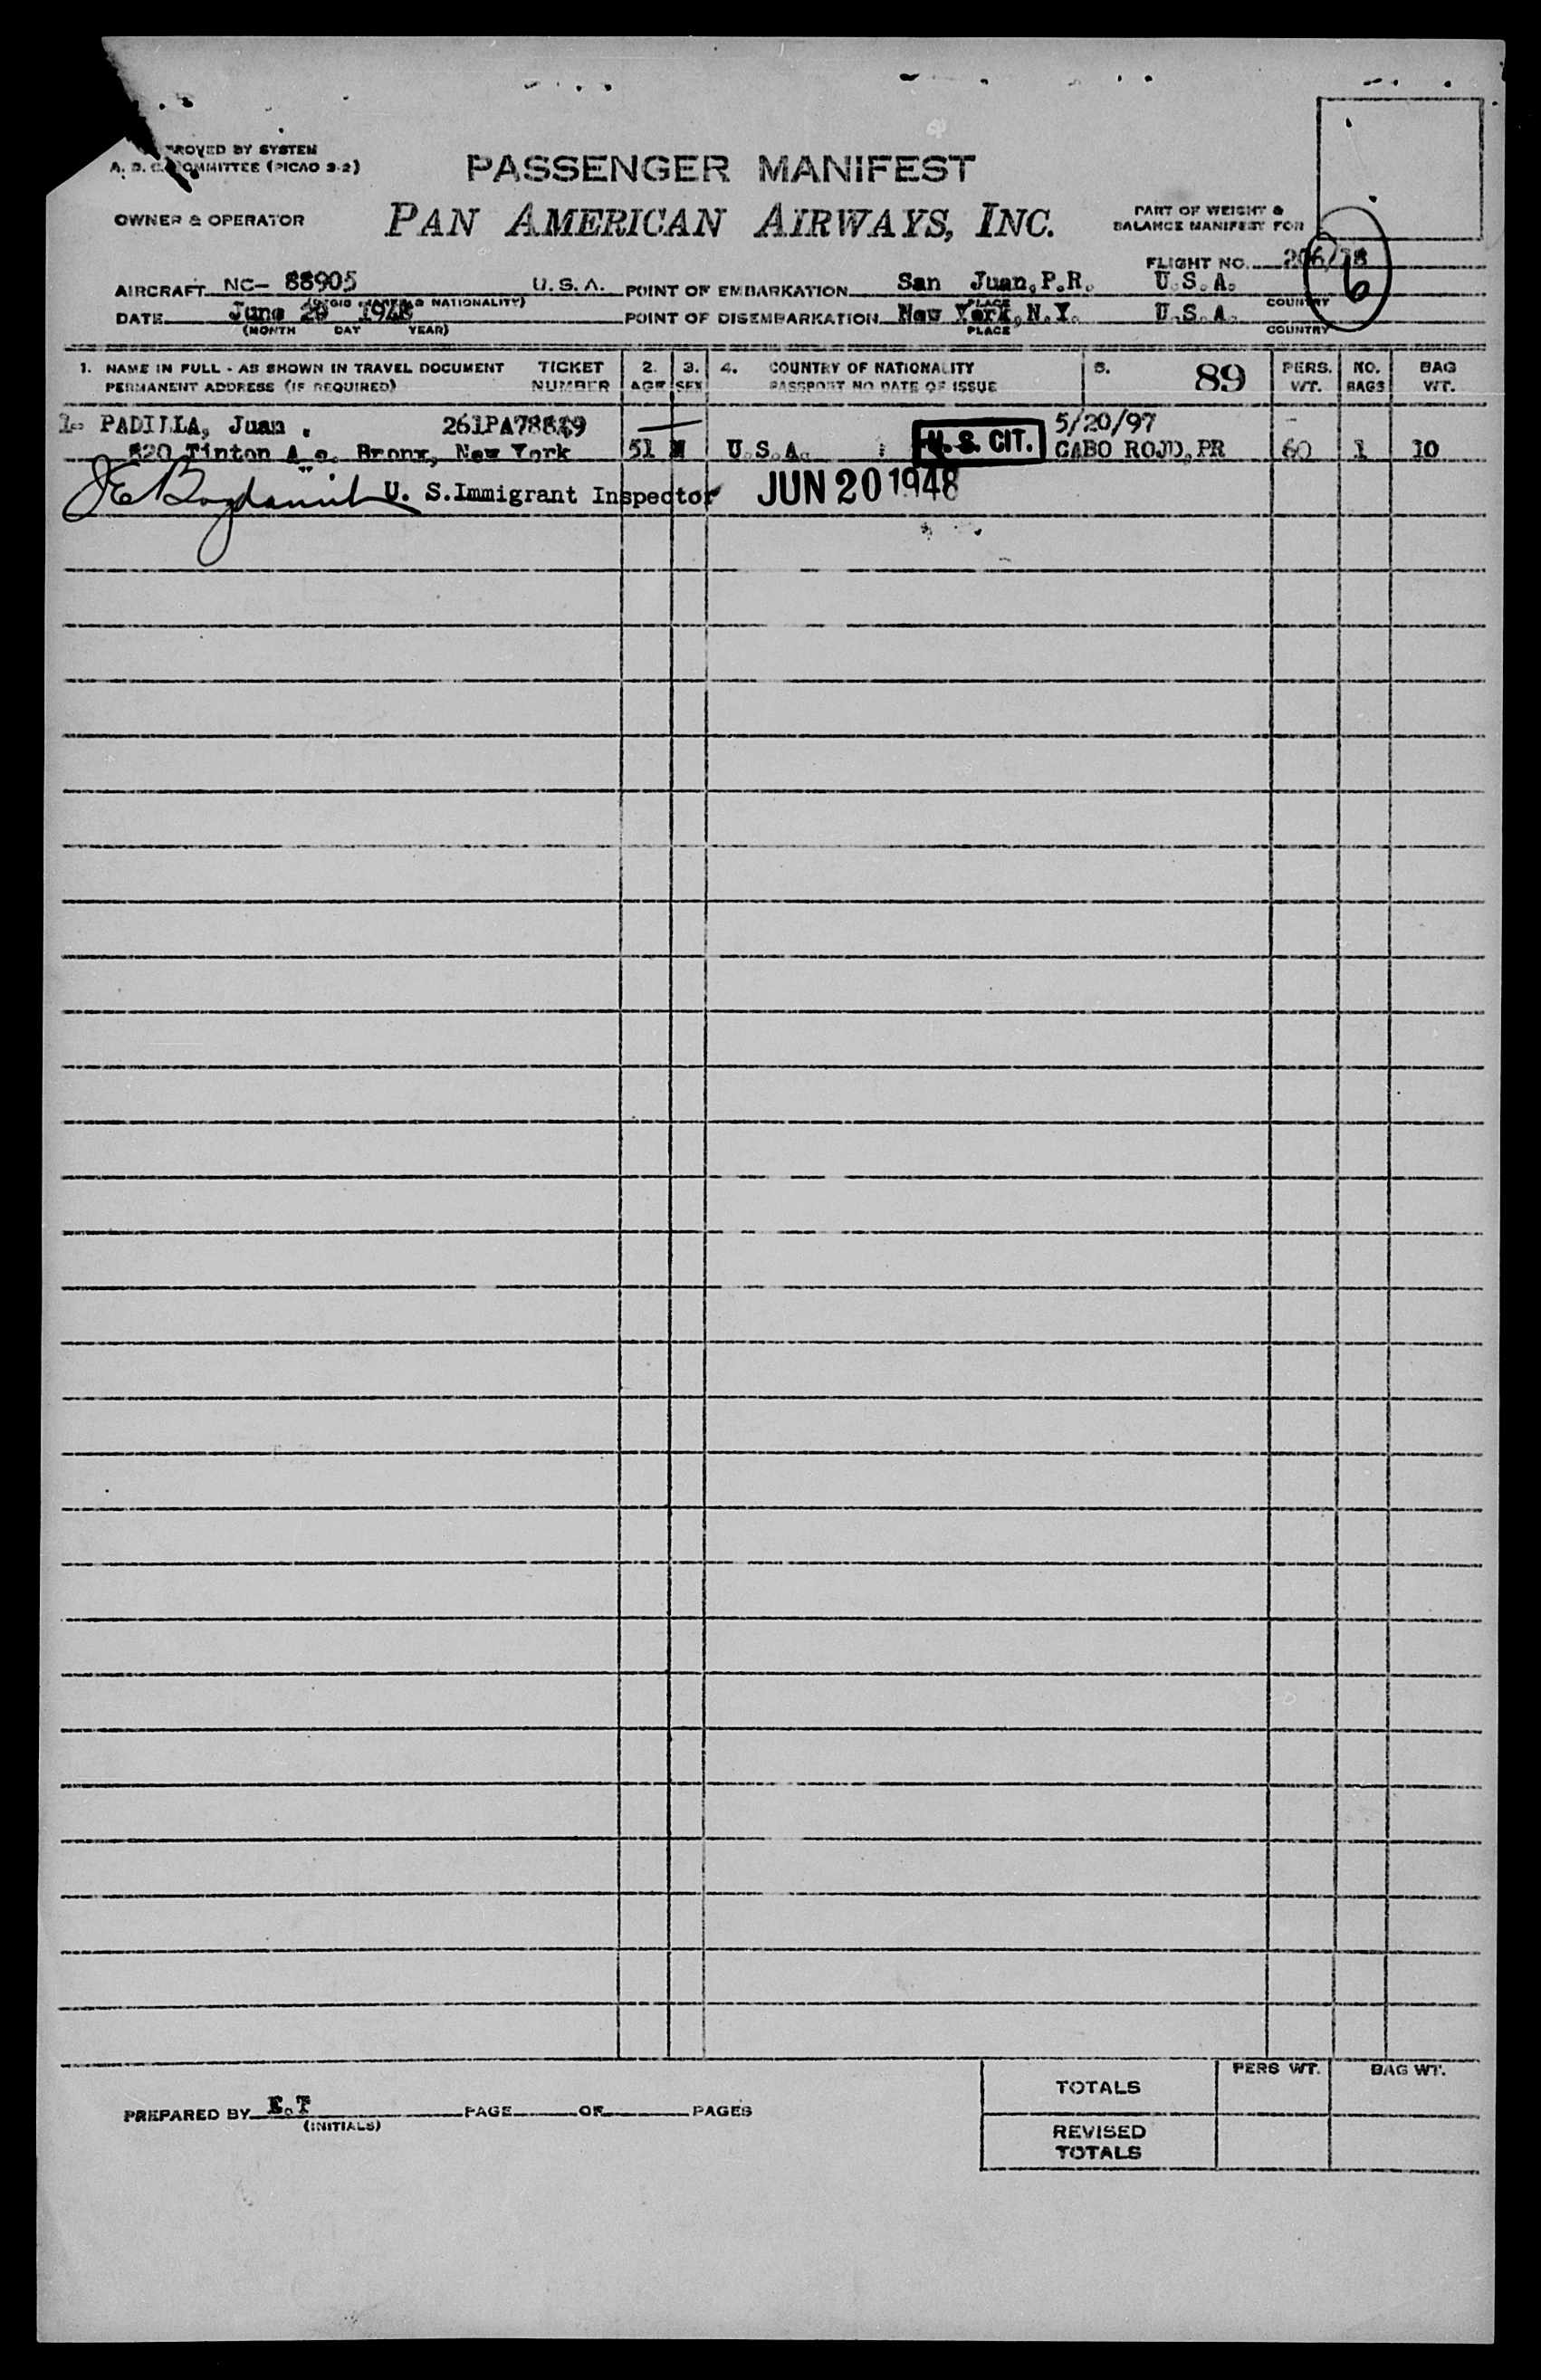 PROVED BY SYSTEM
COMMITTEE (PICAO 9-2)
PASSENGER MANIFEST
OWNER & OPERATOR
PAN AMERICAN AIRWAYS, INC.
PART OF WEIGHT &
BALANCE MANIFEST FOR
FLIGHT NO.
6
AIRCRAFT NC- 88905 U.S.A. POINT OF EMBARKATION San Juan, P.R. U.S.A.
NATIONALITY) PLACE COUNTRY
DATE June 20 1948 POINT OF DISEMBARKATION New York, N.Y. U.S.A.
(MONTH DAY YEAR) PLACE COUNTRY
1. NAME IN FULL - AS SHOWN IN TRAVEL DOCUMENT TICKET 2. 3. 4. COUNTRY OF NATIONALITY 5. 89 PERS. NO. BAG
PERMANENT ADDRESS (IF REQUIRED) NUMBER AGE SEX PASSPORT NO DATE OF ISSUE WT. BAGS WT.
1. PADILLA, Juan . 5/20/97
Tinton Bronx, New York 51 M U.S.A. U.S. CIT. CABO ROJO, PR 60 1 10
U. S. Immigrant Inspector JUN 20 1948
PREPARED BY E.T PAGE OF PAGES
(INITIALS)
PERS WT. BAG WT.
TOTALS
REVISED
TOTALS